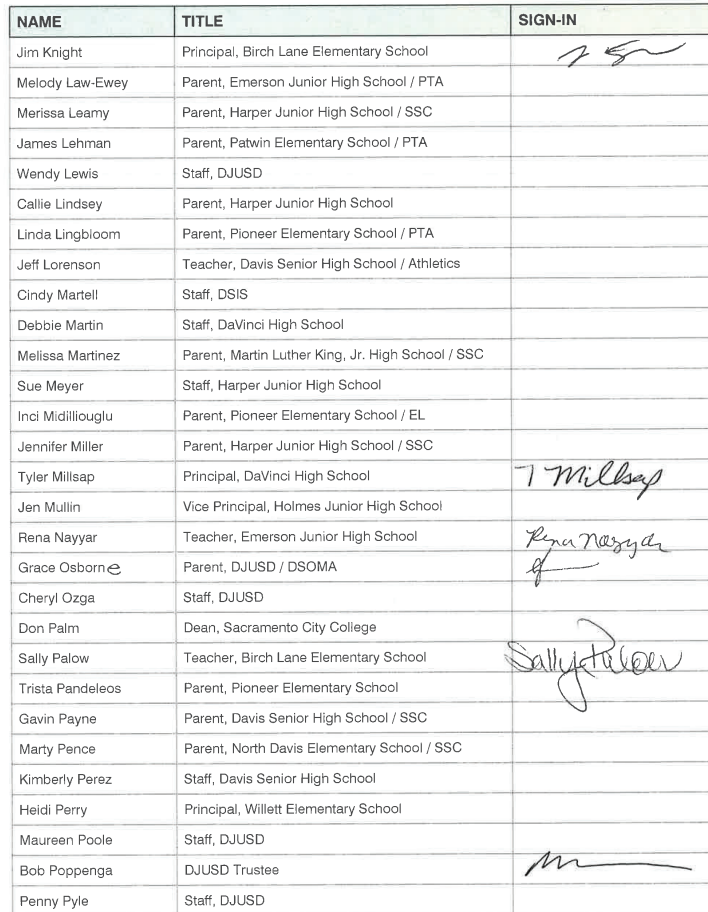 NAME TITLE SIGN-IN
Jim Knight Principal, Birch Lane Elementary School
Melody Law-Ewey Parent, Emerson Junior High School / PTA
Merissa Leamy Parent, Harper Junior High School / SSC
James Lehman Parent, Patwin Elementary School / PTA
Wendy Lewis Staff, DJUSD
Callie Lindsey Parent, Harper Junior High School
Linda Lingbloom Parent, Pioneer Elementary School / PTA
Jeff Lorenson Teacher, Davis Senior High School / Athletics
Cindy Martell Staff, DSIS
Debbie Martin Staff, DaVinci High School
Melissa Martinez Parent, Martin Luther King, Jr. High School / SSC
Sue Meyer Staff, Harper Junior High School
Inci Midilliouglu Parent, Pioneer Elementary School / EL
Jennifer Miller Parent, Harper Junior High School / SSC
Tyler Millsap Principal, DaVinci High School T Millsap
Jen Mullin Vice Principal, Holmes Junior High School
Rena Nayyar Teacher, Emerson Junior High School Rena Nayyar
Grace Osborne Parent, DJUSD / DSOMA
Cheryl Ozga Staff, DJUSD
Don Palm Dean, Sacramento City College
Sally Palow Teacher, Birch Lane Elementary School Sally Palow
Trista Pandeleos Parent, Pioneer Elementary School
Gavin Payne Parent, Davis Senior High School / SSC
Marty Pence Parent, North Davis Elementary School / SSC
Kimberly Perez Staff, Davis Senior High School
Heidi Perry Principal, Willett Elementary School
Maureen Poole Staff, DJUSD
Bob Poppenga DJUSD Trustee
Penny Pyle Staff, DJUSD